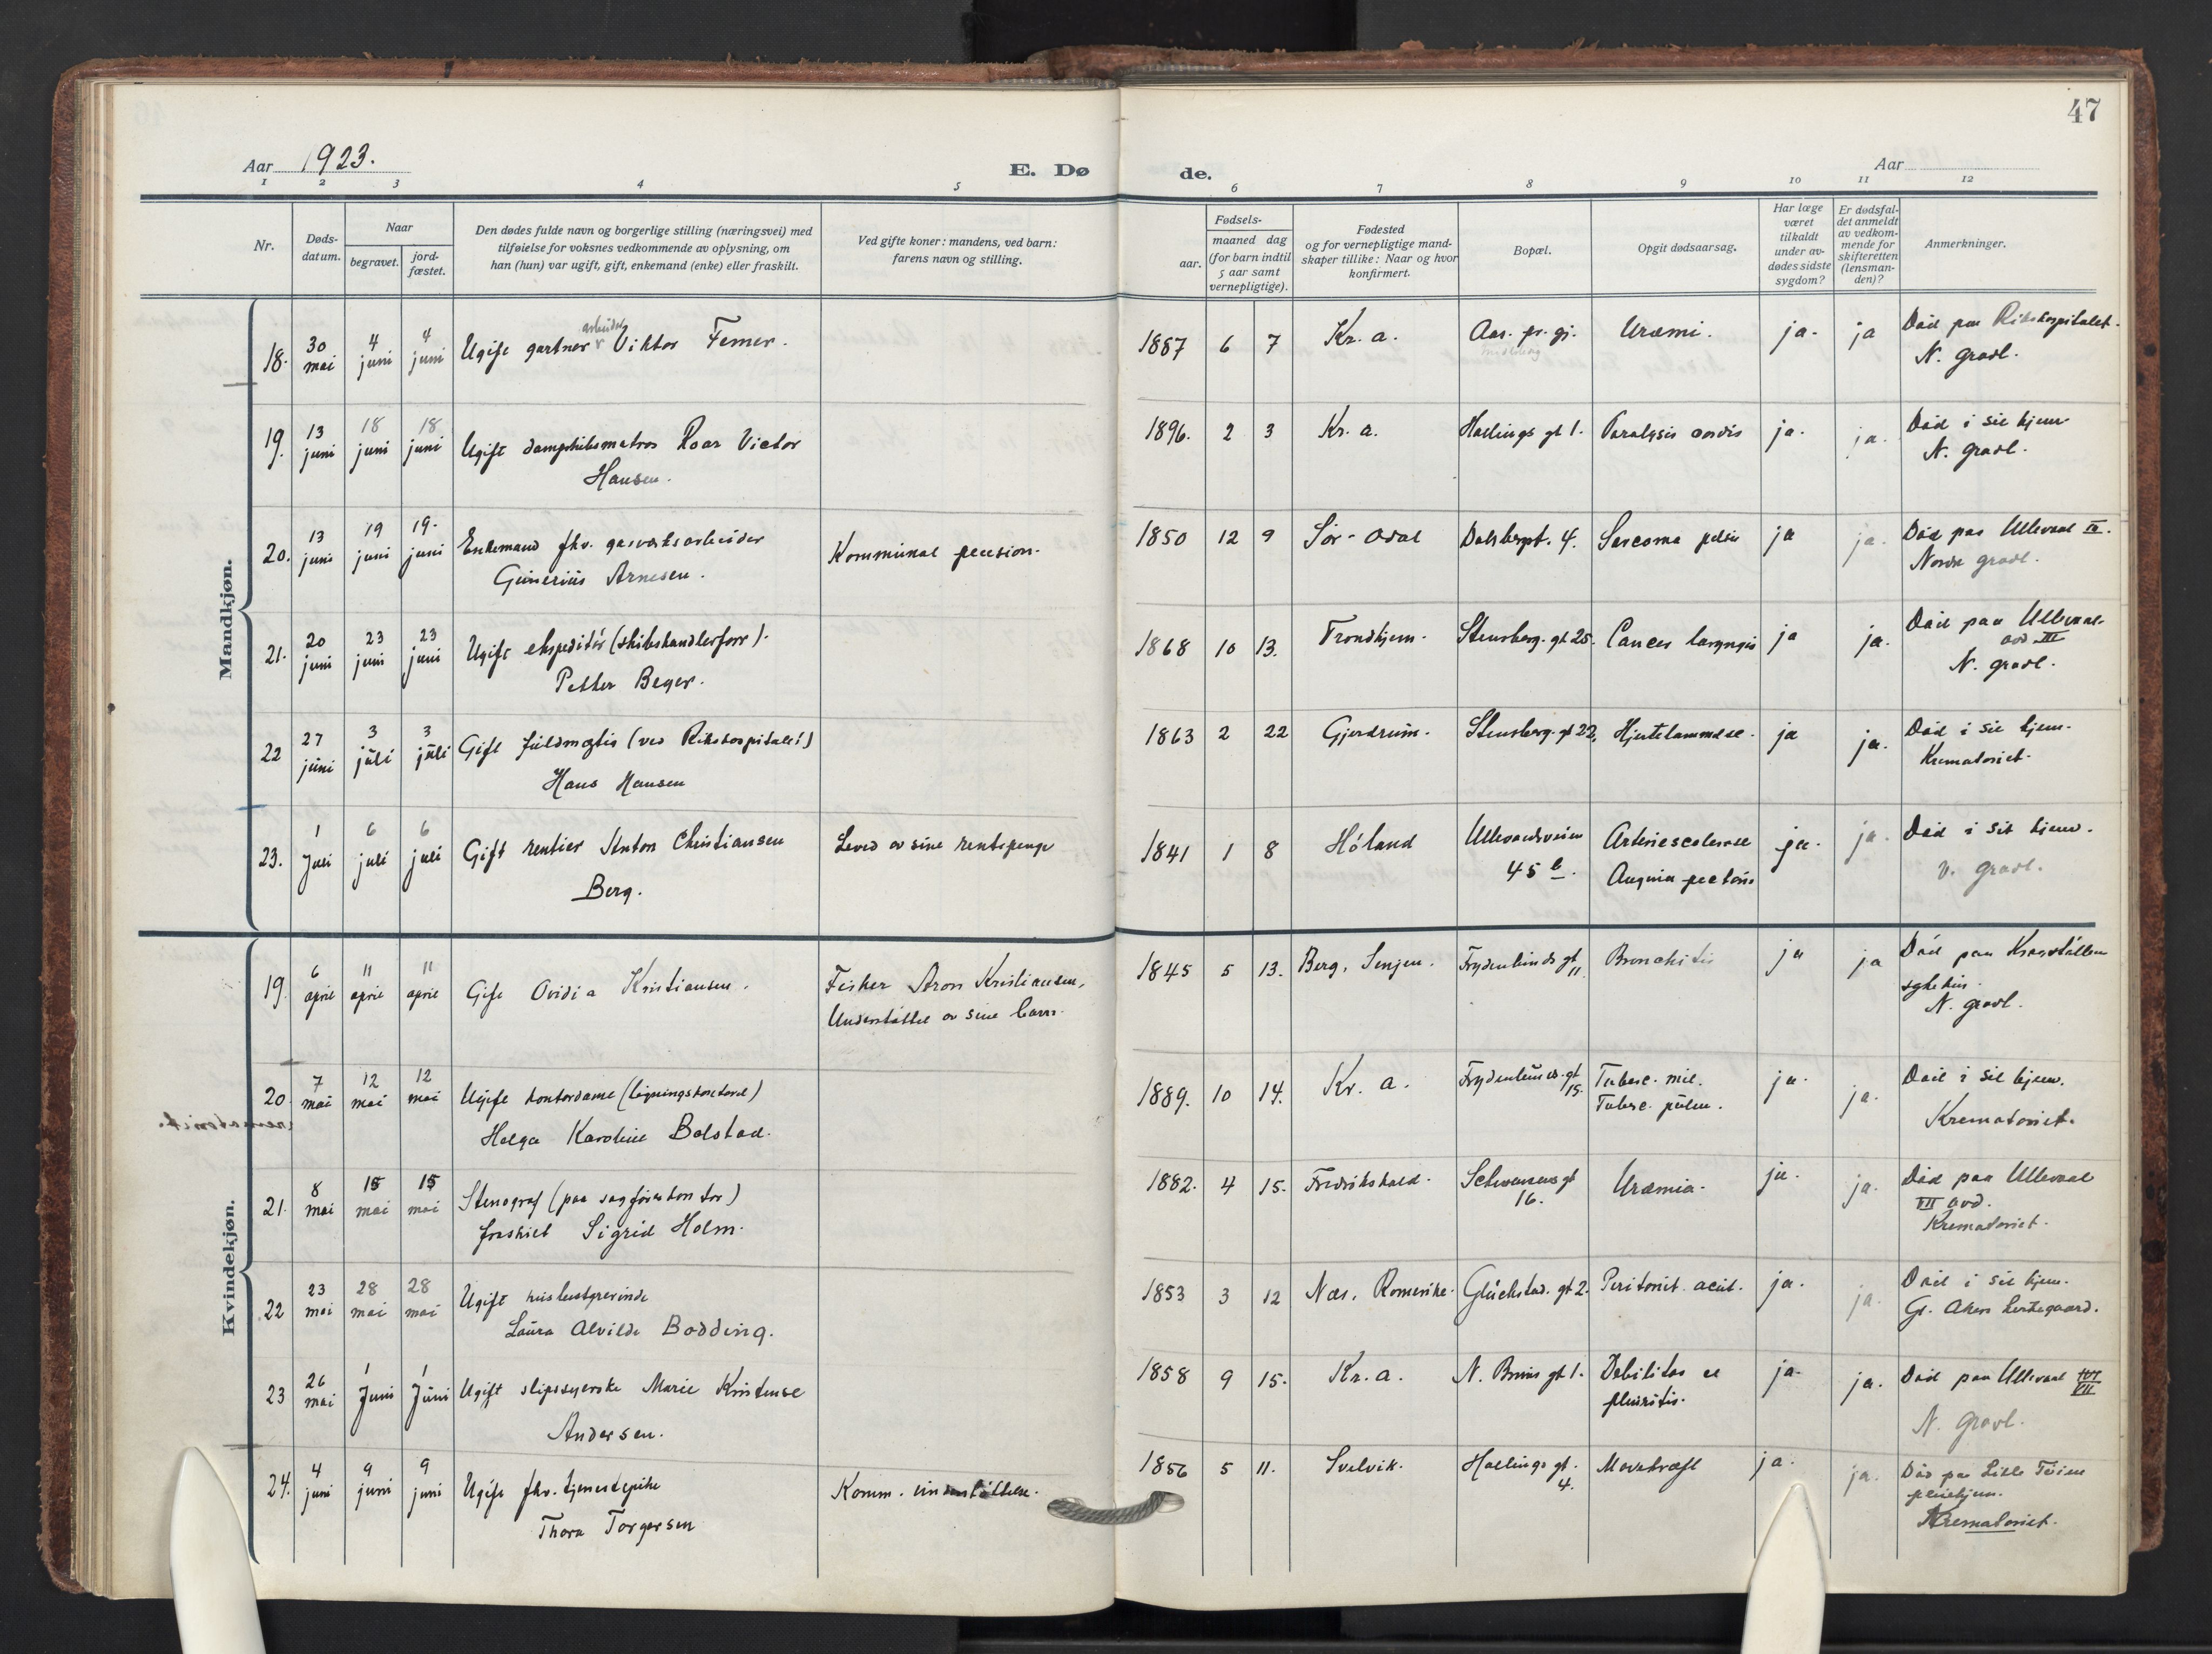 47
Aar 1923.
E. Dø
de.
Aar
1 2 3 4 5 6 7 8 9 10 11 12
Nr.
Døds-
datum.
Naar
begravet.
jord-
fæstet.
Den dødes fulde navn og borgerlige stilling (næringsvei) med
tilføielse for voksnes vedkommende av oplysning, om
han (hun) var ugift, gift, enkemand (enke) eller fraskilt.
Ved gifte koner: mandens, ved barn:
farens navn og stilling.
Fødsels-
aar.
maaned dag
(for barn indtil
5 aar samt
vernepligtige).
Fødested
og for vernepligtige mand-
skaper tillike: Naar og hvor
konfirmert.
Bopæl.
Opgit dødsaarsag.
Har læge
været
tilkaldt
under av-
dødes sidste
sygdom?
Er dødsfal-
det anmeldt
av vedkom-
mende for
skifteretten
(lensman-
den)?
Anmerkninger.
Mandkjøn.
18. 30 mai 4 juni 4 juni Ugift gartner arbeider Viktor Femer. 1887 6 7 Kr. a. Uræmi. ja. ja Död paa Rikshospitalet.
N. gravl.
19. 13 juni 18 juni 18 juni Ugift dampskibsmatros Roar Victor
Hansen. 1896. 2 3 Kr. a. Hallings gt 1. Paralysis cordis ja. ja. Död i sit hjem
N. gravl.
20. 13 juni 19 juni 19. juni Enkemand fhv. gasverksarbeider
Gunerius Arnesen. Kommunal pension. 1850 12 9 Sör-Odal Dalsbergst. 4. Sarcoma pelvis ja ja. Död paa Ullevaal IX.
Nordre gravl.
21. 20 juni 23 juni 23 juni Ugift ekspeditör (skibshandlerforr.).
Petter Beyer. 1868 10 13. Trondhjem. Stensberg. gt 25. Cancer laryngis ja ja. Död paa Ullevaal
avd. III
N. gravl.
22 27 juni 3 juli 3 juli Gift fuldmægtig (ved Rikshospitalet)
Hans Hansen 1863 2 22 Gjerdrum. Stensberg. gt 22. Hjertelammelse. ja ja. Död i sit hjem.
Krematoriet.
23. 1 Juli 6 juli 6 juli Gift rentier Anton Christiansen
Berg. Leved av sine rentepenge 1841 1 8 Höland Ullevaalsveien
45 b. Arteriesclerose
Angina pectoris ja. ja. Död i sit hjem.
V. gravl.
Kvindekjøn.
19. 6 april 11 april 11 april Gift Ovidia Kristiansen. Fisker Aron Kristiansen,
Understöttet av sine barn. 1845 5 13. Berg, Senjen. Frydenlunds gt
11. Bronchitis ja ja Död paa Krosstöllen
sykehus.
N. gravl.
20. 7 mai 12 mai 12 mai Ugift kontordame (ligningskontoret)
Helga Karoline Bolstad. 1889. 10 14. Kr. a. Frydenlunds. gt
15. Tuberc. mil.
Tuberc. pulm. ja. ja. Död i sit hjem.
Krematoriet.
21. 8 mai 15 mai 15 mai Stenograf (paa sagförerkontor)
fraskilt Sigrid Holm. 1882. 4 15. Fredrikshald. Schwensens gt
16. Uræmia. ja. ja. Död paa Ullevaal
VII avd.
Krematoriet.
22 23 mai 28 mai 28 mai Ugift husbestyrerinde
Laura Alvilde Bodding. 1853 3 12 Næs, Romerike. Glückstad. gt 2. Peritonit. acut. ja. ja. Död i sit hjem.
Gl. Akers kirkegaard.
23 26 mai 1 Juni 1 Juni Ugift slipssyerske Marie Kristense
Andersen. 1858 9 15. Kr. a. N. Bruns gt 1. Debilitas et
pleuritis. ja. ja. Död paa Ullevaal VII
N. gravl.
24. 4 juni 9 juni 9 juni Ugift fhv. tjenestepike
Thora Torgersen Komm. understöttelse. 1856 5 11. Svelvik. Hallings gt.
4. Mavekræft ja. ja. Död paa Lille Töien
pleiehjem.
Krematoriet.